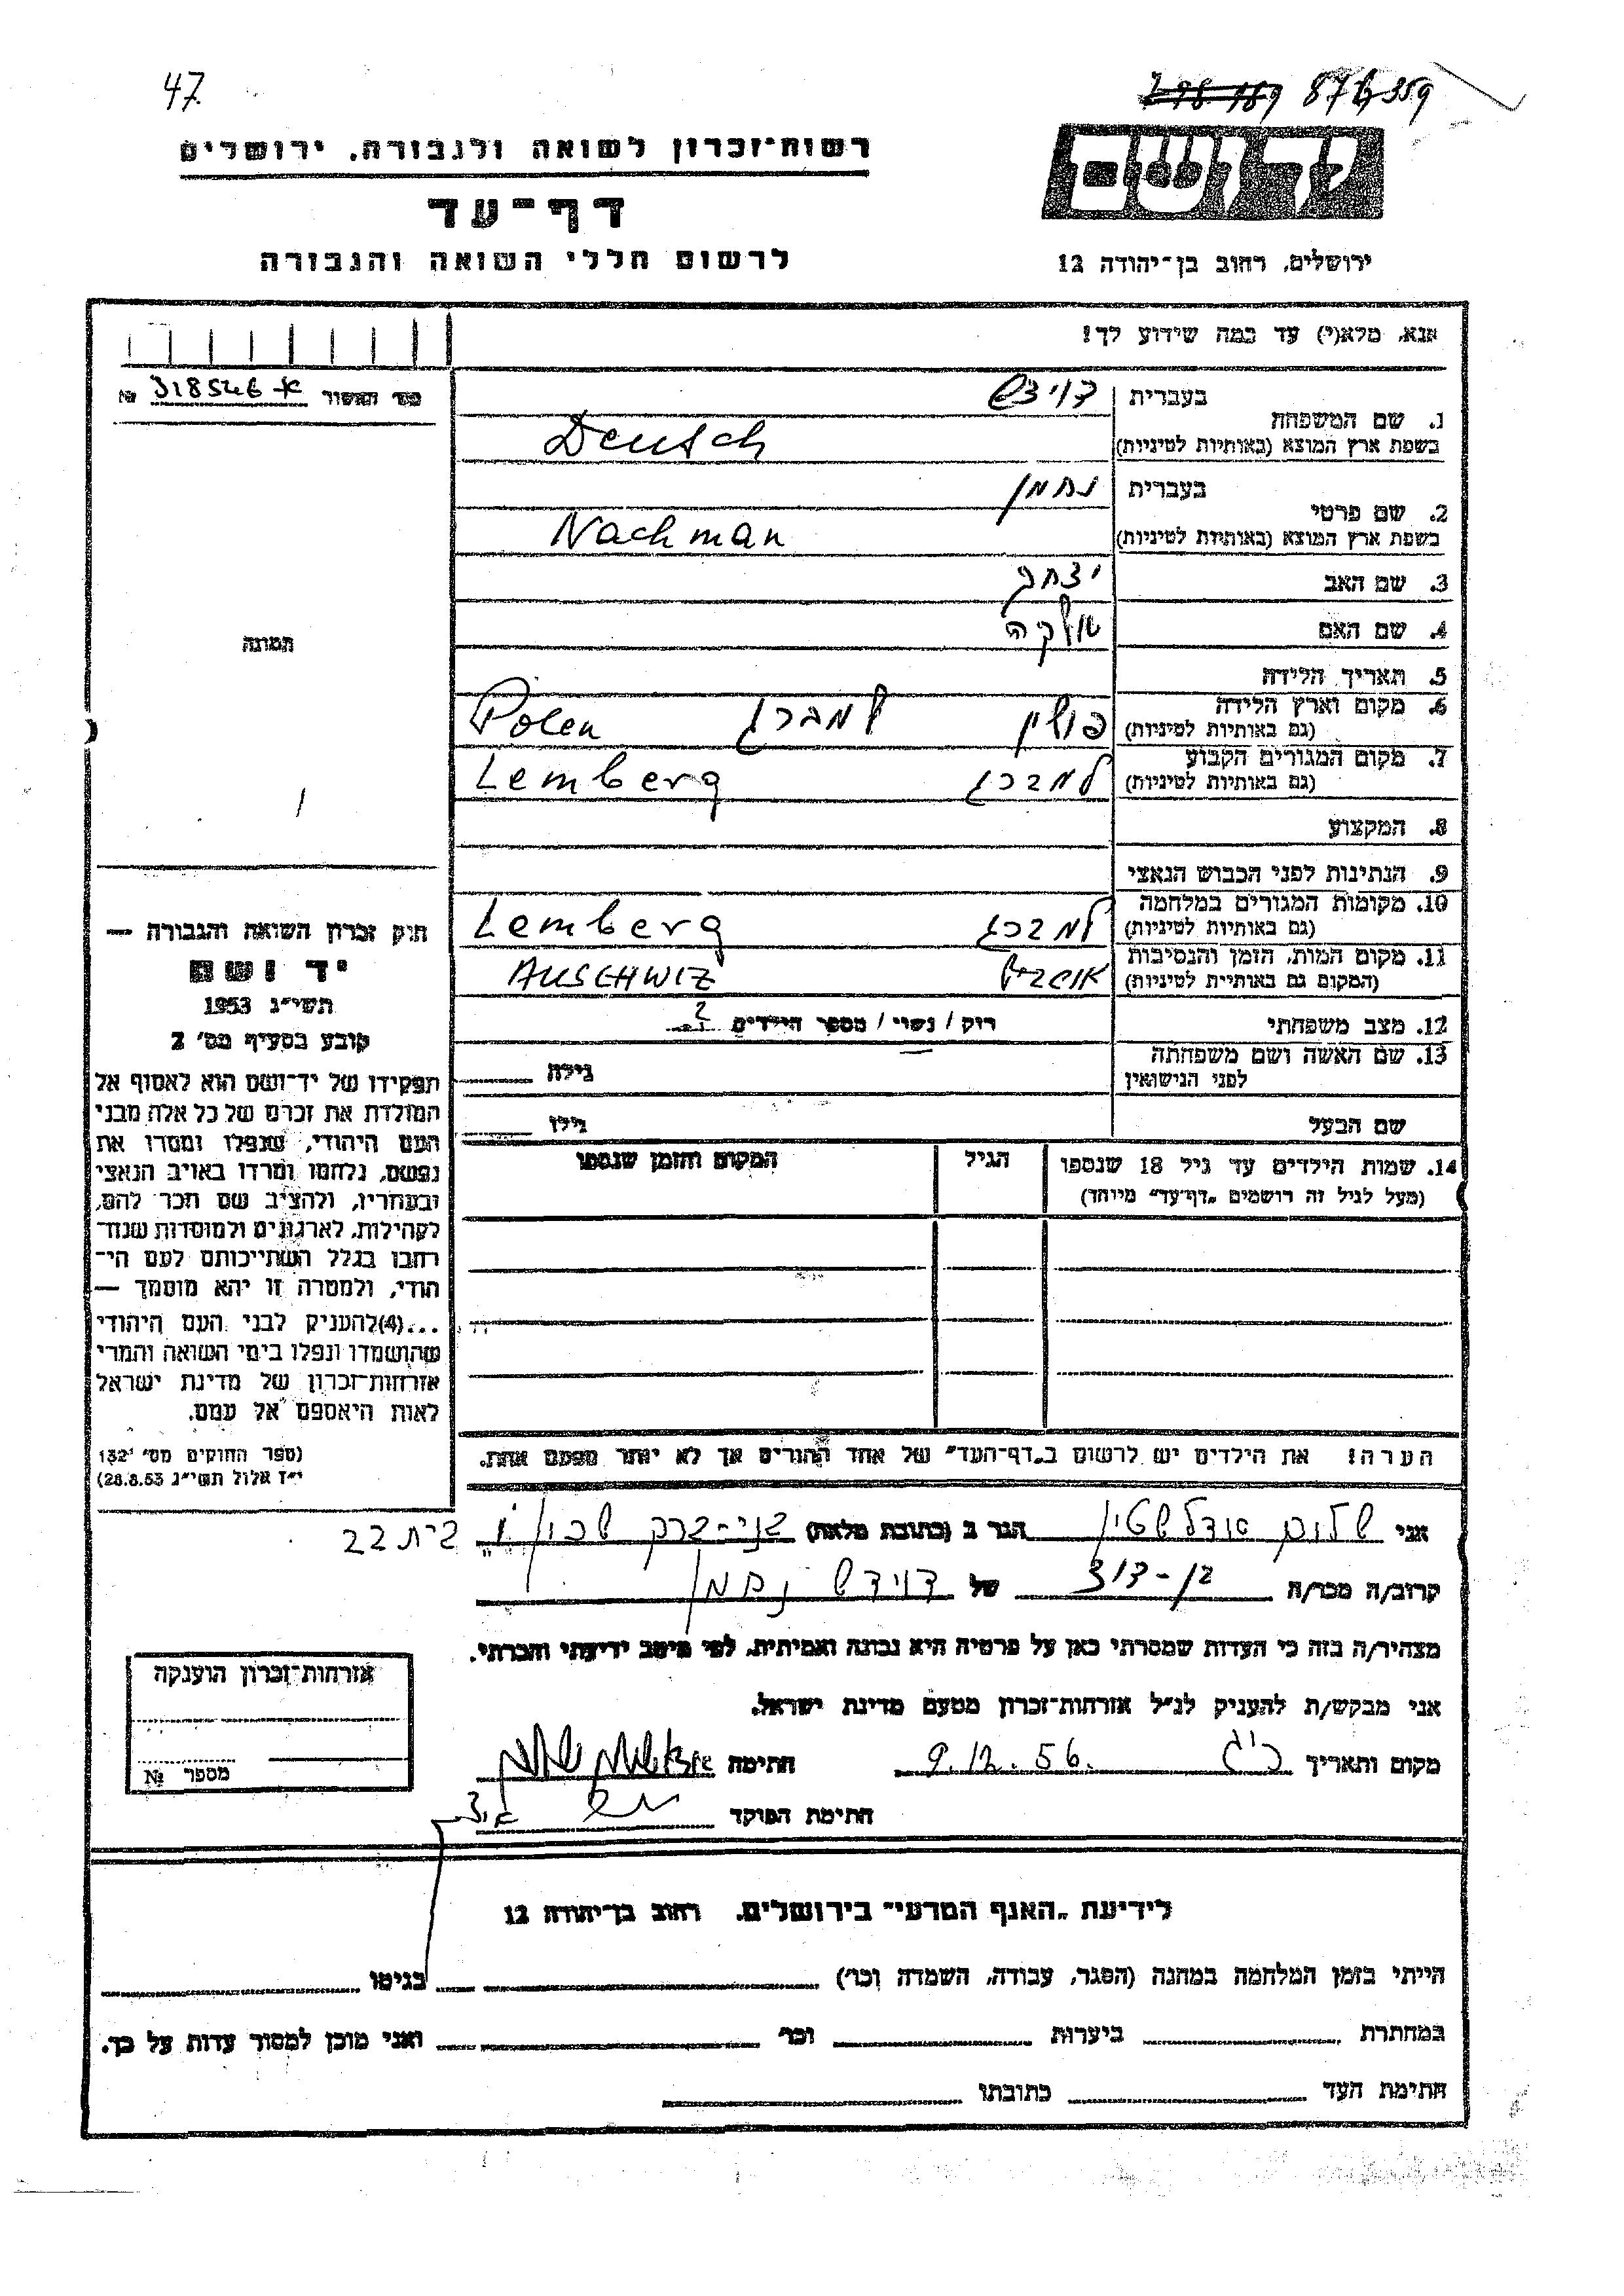 47.
876359
רשות־זכרון לשואה ולגבורה, ירושלים
דף־עד
לרשום חללי השואה והגבורה
ירושלים, רחוב בן־יהודה 12
אנא, מלא(י) עד כמה שידוע לך!
מס' האשור 318546 №
1. שם המשפחה בעברית דויטש
בשפת ארץ המוצא (באותיות לטיניות) Deutsch
2. שם פרטי בעברית נחמן
בשפת ארץ המוצא (באותיות לטיניות) Nachman
3. שם האב יצחק
4. שם האם
5. תאריך הלידה
6. מקום וארץ הלידה (גם באותיות לטיניות) פולין למברג Polen
7. מקום המגורים הקבוע (גם באותיות לטיניות) למברג Lemberg
8. המקצוע
9. הנתינות לפני הכבוש הנאצי
10. מקומות המגורים במלחמה (גם באותיות לטיניות) למברג Lemberg
11. מקום המות, הזמן והנסיבות (המקום גם באותיות לטיניות) AUSCHWIZ
12. מצב משפחתי רוק / נשוי / מספר הילדים 2
13. שם האשה ושם משפחתה לפני הנישואין גילה
שם הבעל גילו
14. שמות הילדים עד גיל 18 שנספו הגיל המקום והזמן שנספו
(מעל לגיל זה רושמים „דף־עד" מיוחד)
הערה! את הילדים יש לרשום ב„דף־העד" של אחד ההורים אך לא יותר מפעם אחת.
תמונה
חוק זכרון השואה והגבורה —
יד ושם
תשי״ג 1953
קובע בסעיף מס' 2
תפקידו של יד־ושם הוא לאסוף אל
המולדת את זכרם של כל אלה מבני
העם היהודי, שנפלו ומסרו את
נפשם, נלחמו ומרדו באויב הנאצי
ובעוזריו, ולהציב שם וזכר להם,
לקהילות, לארגונים ולמוסדות שנח־
רבו בגלל השתייכותם לעם הי־
הודי, ולמטרה זו יהא מוסמך —
...(4) להעניק לבני העם היהודי
שהושמדו ונפלו בימי השואה והמרי
אזרחות־זכרון של מדינת ישראל
לאות היאספם אל עמם.
(ספר החוקים מס' 132
י״ז אלול תשי״ג 28.8.53)
אני שלום אדלשטין הגר ב (כתובת מלאה) בני-ברק שכון ו' בית 22
קרוב/ה מכר/ה בן-דוד של דויטש נחמן
מצהיר/ה בזה כי העדות שמסרתי כאן על פרטיה היא נכונה ואמיתית, לפי מיטב ידיעתי והכרתי.
אני מבקש/ת להעניק לנ״ל אזרחות־זכרון מטעם מדינת ישראל.
מקום ותאריך 9.12.56. חתימה
חתימת הפוקד
אזרחות־זכרון הוענקה
מספר №
לידיעת „האגף המדעי" בירושלים, רחוב בן־יהודה 12
הייתי בזמן המלחמה במחנה (הסגר, עבודה, השמדה וכו') בגיטו
במחתרת ביערות וכו' ואני מוכן למסור עדות על כך.
חתימת העד כתובתו